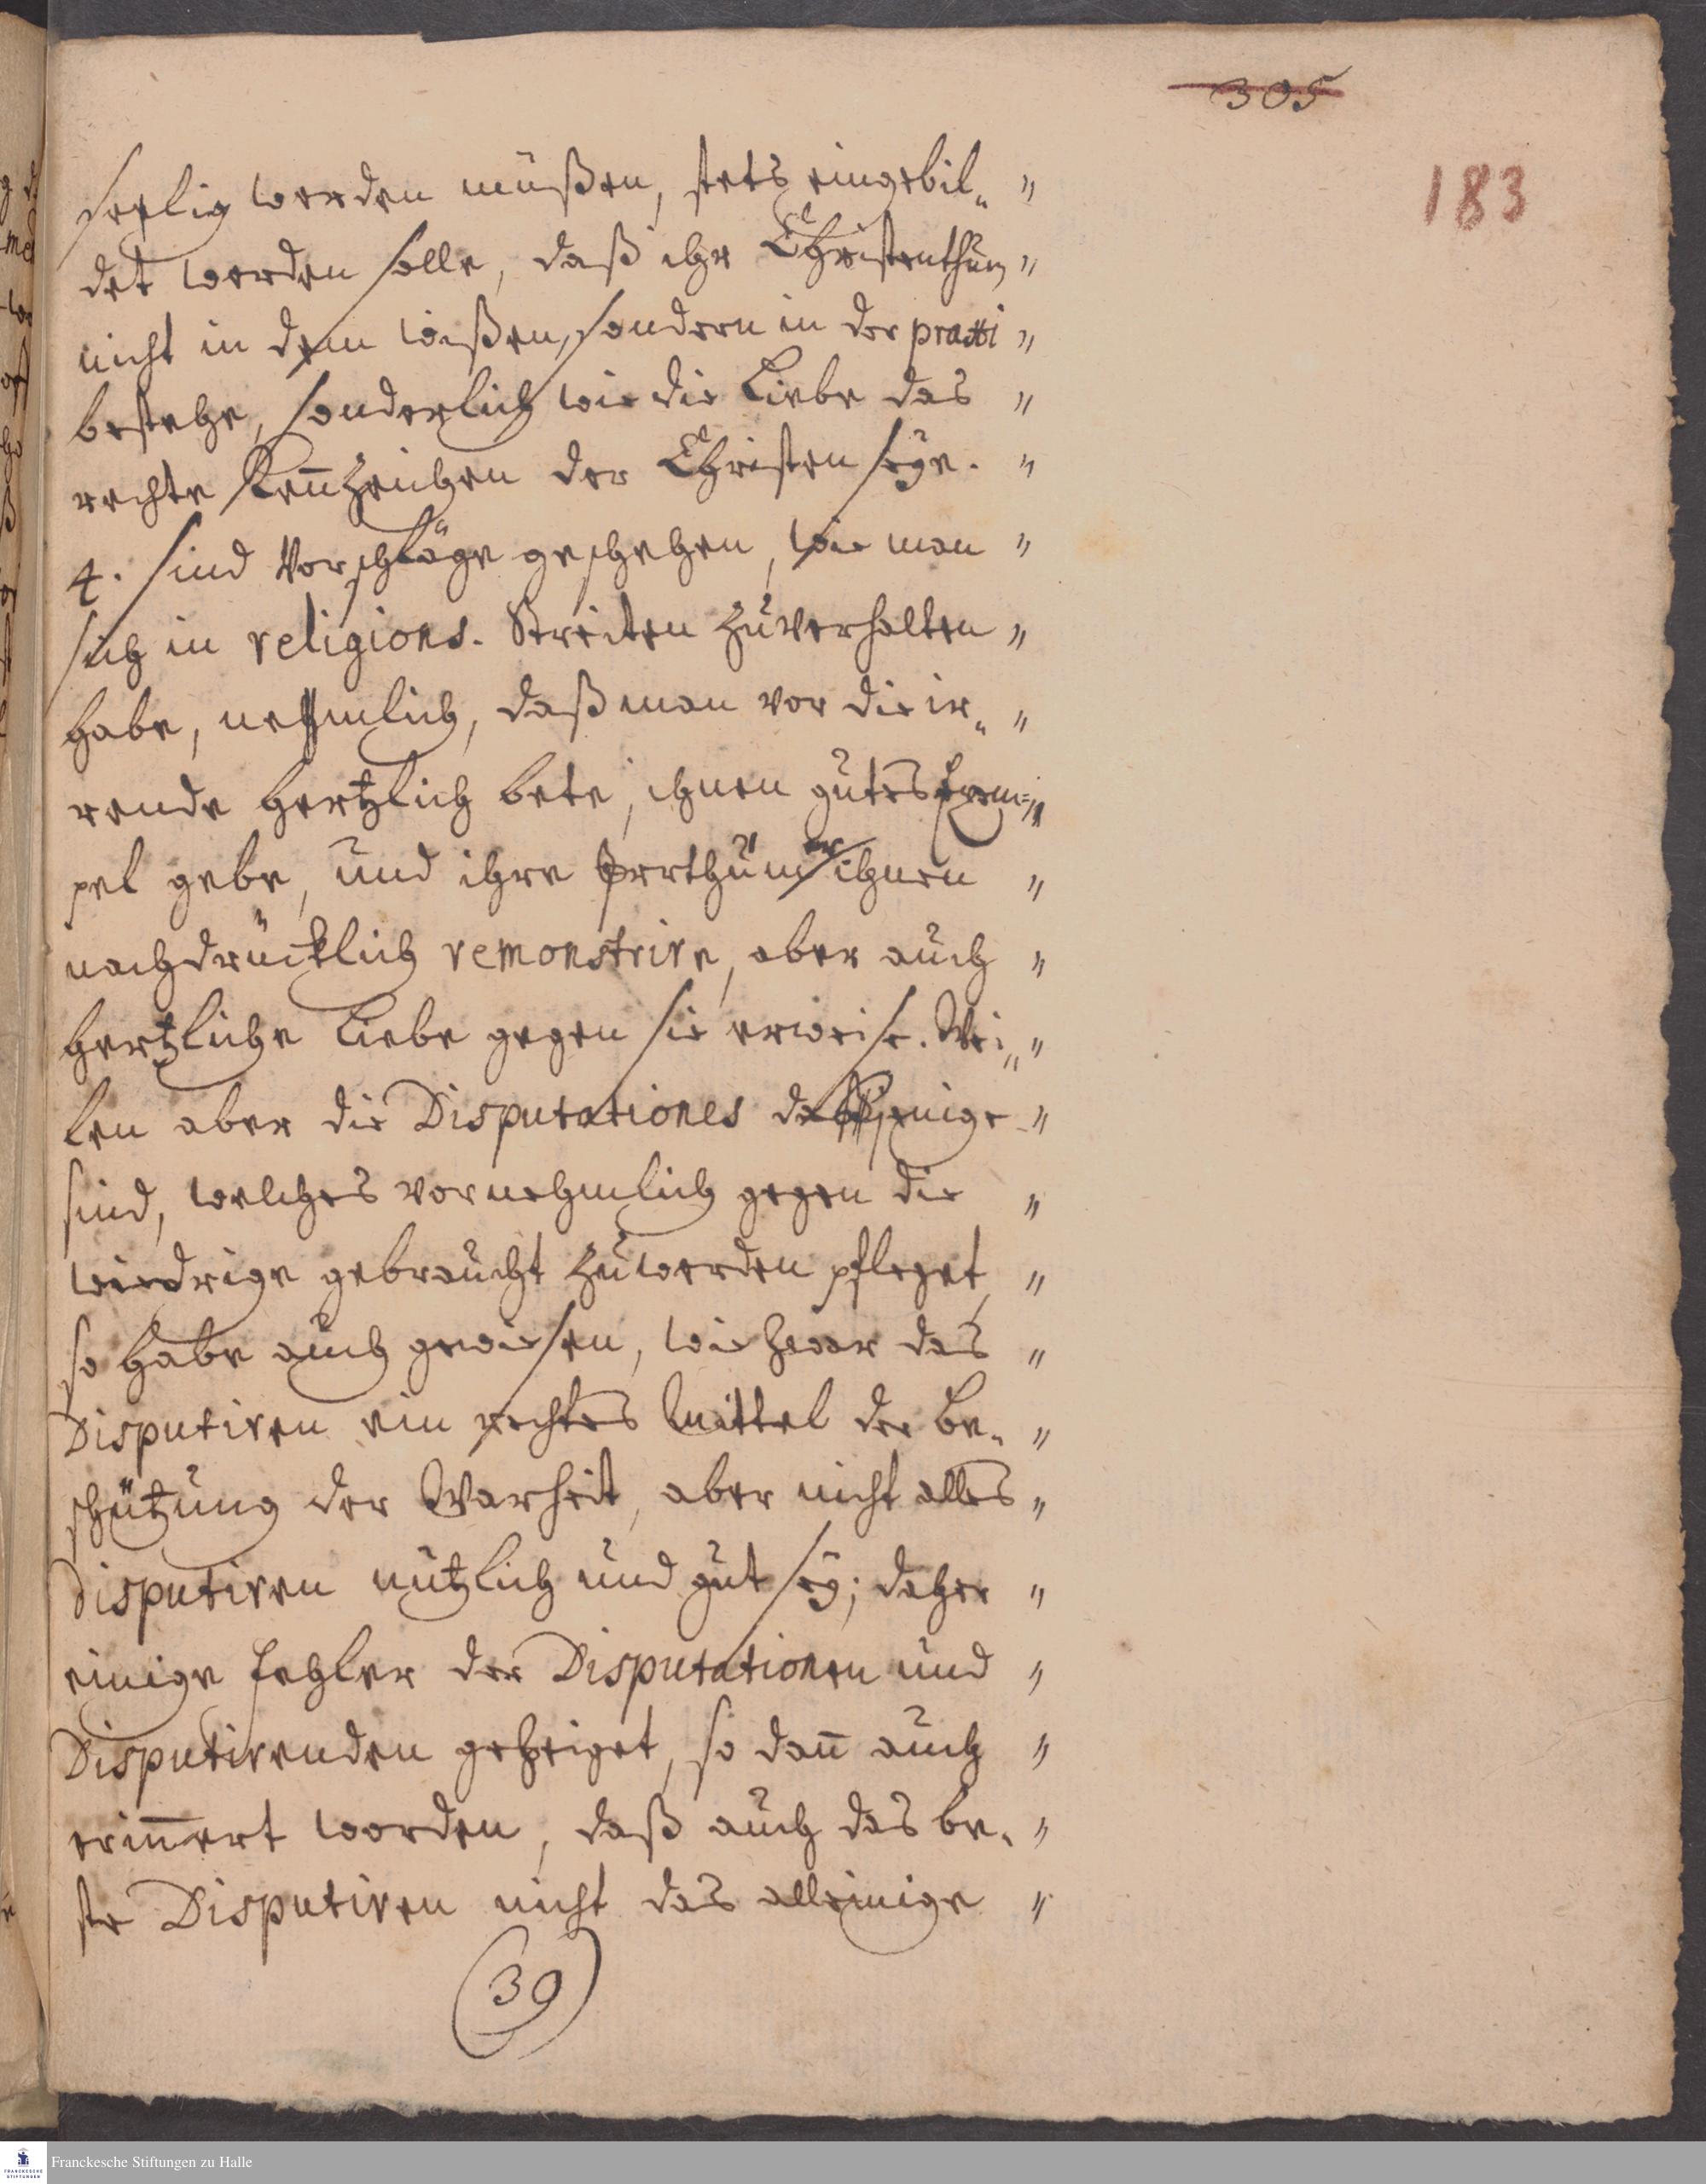 305
183
seelig werden müßen, stets eingebil„ "
det werden solle, daß ihr Christenthum "
nicht in dem wißen, sondern in der praxi "
bestehe, sonderlich wie die Liebe das "
rechte Keñzeichen der Christen seye. "
4. sind Vorschläge geschehen, wie man "
sich in religions. Streiten zuverhalten "
habe, nehmlich, daß man vor die ir„ "
rende hertzlich bete, ihnen gutes Exem= "
pel gebe, und ihre Irrthümer ihnen "
nachdrücklich remonstrire, aber auch "
hertzliche Liebe gegen sie erweise. Wei„ "
len aber die Disputationes dasjenige "
sind, welches vornehmlich gegen die "
wiedrige gebraucht zuwerden pfleget, "
so habe auch gewiesen, wie zwar das "
Disputiren ein rechtes Mittel der be„ "
schützung der Warheit, aber nicht alles "
disputiren nützlich und gut seÿ; daher "
einige fehler der Disputationen und "
Disputirenden gezeiget, so dañ auch "
eriñert worden, daß auch das be„ "
ste Disputiren nicht das alleinige "
39
Franckesche Stiftungen zu Halle
FRANCKESCHE
STIFTUNGEN